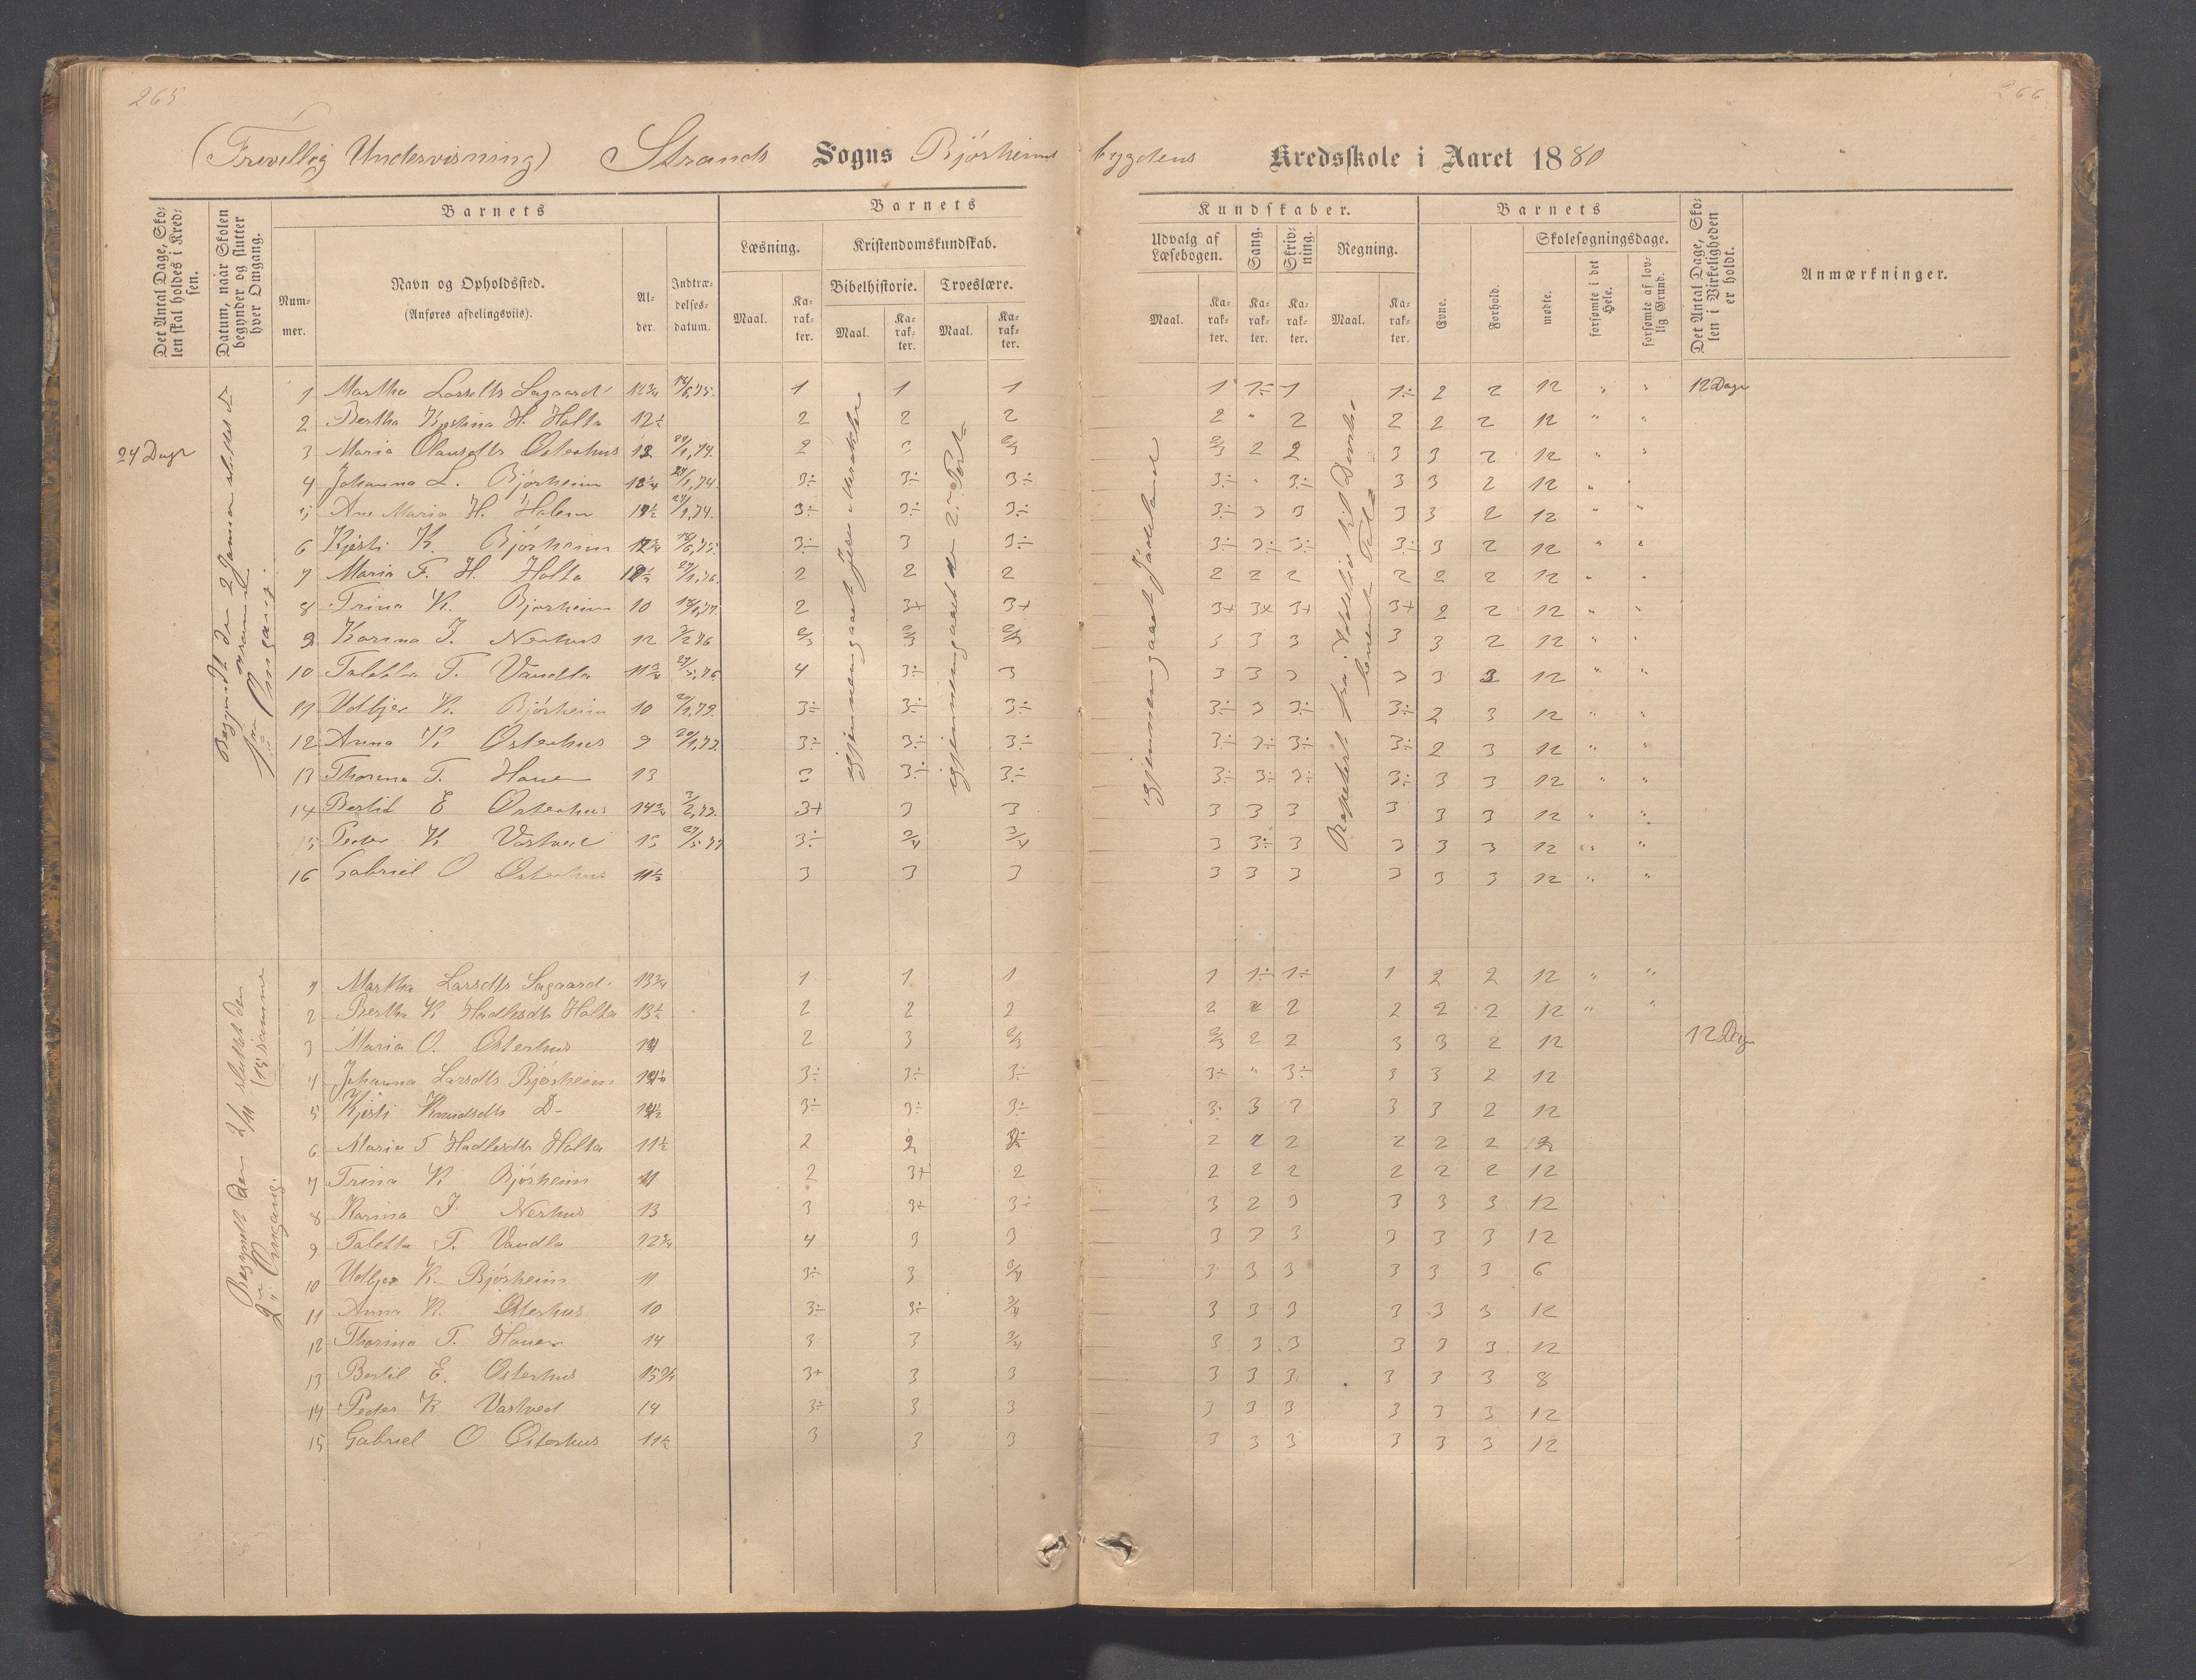 265
266
(Frivillig Undervisning) Strands Sogns Bjørheims bygdens Kredsskole i Aaret 1880
Det Antal Dage, Skolen skal holdes i Kredsen.
Datum, naar Skolen begynder og slutter hver Omgang.
Barnets
Nummer.
Navn og Opholdssted.
(Anføres afdelingsviis).
Alder.
Indtrædelsesdatum.
Barnets
Læsning.
Maal.
Karakter.
Kristendomskundskab.
Bibelhistorie.
Maal.
Karakter.
Troeslære.
Maal.
Karakter.
Kundskaber.
Udvalg af Læsebogen.
Maal.
Karakter.
Sang.
Karakter.
Skrivning.
Karakter.
Regning.
Maal.
Karakter.
Barnets
Evne.
Forhold.
Skolesøgningsdage.
mødte.
forsømte i det Hele.
forsømte af lovlig Grund.
Det Antal Dage, Skolen i Virkeligheden er holdt.
Anmærkninger.
24 Dage
1ste Omgang.
1 Martha Larsdtr Sagaard 1 1 1 1 1÷ 1 1÷ 2 2 12 " " 12 Dage
2 Bertha Kjestina H. Holta 12½ 2 2 2 2 " 2 2 2 2 12 " "
3 Maria Olausdtr Østerhus 2 2 2 3 3 2 12 " "
4 Johanna L. Bjørheim 3÷ 3÷ 3÷ 3÷ " 3÷ 3 3 2 12 "
5 Ane Maria H. Holen 3÷ 3÷ 3÷ 3÷ 3 3 3 3 2 12 " "
6 Kjesti K. Bjørheim 3÷ 3 3÷ 3÷ 3÷ 3÷ 3÷ 3 2 12 " "
7 Maria T. H. Holta 2 2 2 2 2 2 2 2 2 12 " "
8 Trina K. Bjørheim 10 2 3+ 3+ 3+ 3+ 3+ 3+ 2 2 12 " "
9 Karina J. Nerhus 12 3/2 76 2/3 2/3 2/3 3 3 3 3 3 2 12 " "
10 Taletta T. Vandla 11¾ 4 3÷ 3 3 3 3 3 3 3 12 " "
11 Udbjør K. Bjørheim 10 3÷ 3÷ 3÷ 3÷ 3 3÷ 3÷ 2 3 12 " "
12 Anna K Østerhus 9 3÷ 3÷ 3÷ 3÷ 3÷ 3÷ 3÷ 2 3 12 " "
13 Thorina T. Hauen 13 3 3÷ 3÷ 3÷ 3÷ 3÷ 3÷ 3 3 12 " "
14 Bertil E Østerhus 14¾ 3+ 3 3 3 3 3 3 3 3 12 " "
15 Peder K Vastved 13 3÷ 3/4 3/4 3 3÷ 3 3 3 3 12 " "
16 Gabriel O Østerhus 11½ 3 3 3 3 3 3 3 3 3 12 " "
gjennemgaaet
gjennemgaaet
gjennemgaaet
Repetert fra
2den Omgang.
1 Martha Larsdtr Sagaard 13¾ 1 1 1 1 1÷ 1÷ 1 2 2 12 " "
2 Bertha K Hadlesdtr Holta 13½ 2 2 2 2 2 2 2 2 2 12 " "
3 Maria O. Østerhus 14 2 3 2/3 2/3 2 2 3 3 2 12 12 Dage
4 Johanna Larsdtr Bjørheim 3÷ 3÷ 3÷ 3÷ " 3÷ 3 3 2 12
5 Kjesti Knudsdtr D- 3÷ 3÷ 3÷ 3÷ 3 3 3 3 2 12
6 Maria T Hadlesdtr Holta 11½ 2 2 2 2 2 2 2 2 12
7 Trina K Bjørheim 11 2 3+ 2 2 2 2 2 2 2 12
8 Karina J. Nerhus 13 3 3÷ 3÷ 3 2 3 3 3 3 12
9 Taletta T. Vandla 12¾ 4 3 3 3 3 3 3 3 3 12
10 Udbjør K. Bjørheim 11 3÷ 3 3/4 3 3 3 3 3 3 6
11 Anna K. Østerhus 10 3÷ 3÷ 3/4 3 3 3 3 3 3 12
12 Thorina T. Hauen 14 3 3 3/4 3 3 3 3 3 3 12
13 Bertil E. Østerhus 15¾ 3+ 3 3 3 3 3 3 3 3 8
14 Peder K Vastved 14 3÷ 3 3 3 3 3 3 3 3 12
15 Gabriel O Østerhus 11½ 3 3 3 3 3 3 3 3 3 12